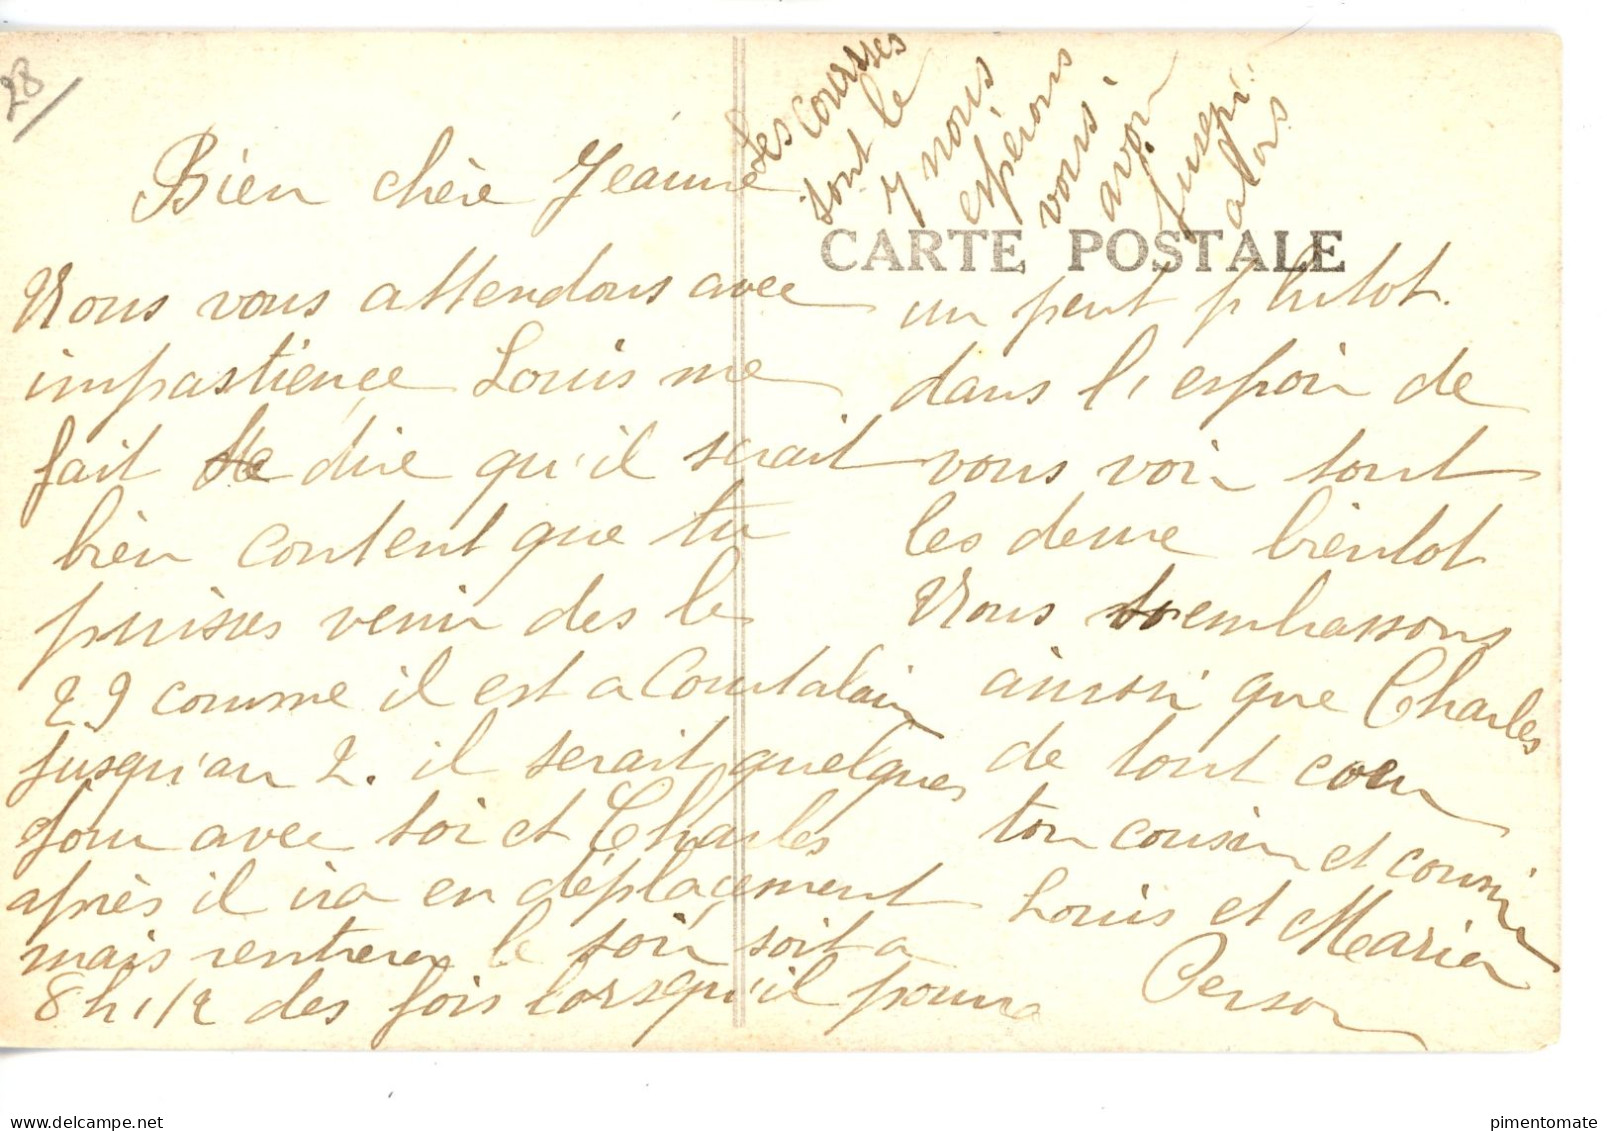 28
Bien chère Jeanne
Nous vous attendons avec
impastience Louis me
fait dire qu'il serait
bien content que tu
puisses venir des le
29 comme il est a Courtalain
jusqu'au 2. il serait quelques
jour avec toi et Charles
après il ira en déplaçement
mais rentrera le soir soit a
8 h 1/2 des fois lorsqu'il pourra
un peut plutot.
dans l'espoir de
vous voir tout
les deux bientot
Nous embrassons
ainsi que Charles
de tout coeur
ton cousin et cousin
Louis et Maria
Person
les courses
sont le
7 nous
espérons
vous
avoir
jusqu'
alors
CARTE POSTALE
pimentomate